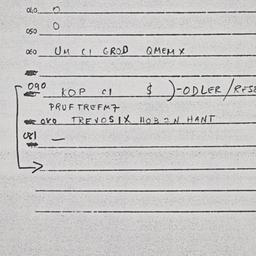 040 0
050 0
060 UM CI GROD QMEMX
090 KOP CI $ )-ODLER/RESE
PRUFTREFM7
080 TREVOSIX HOBON HANT
081 —